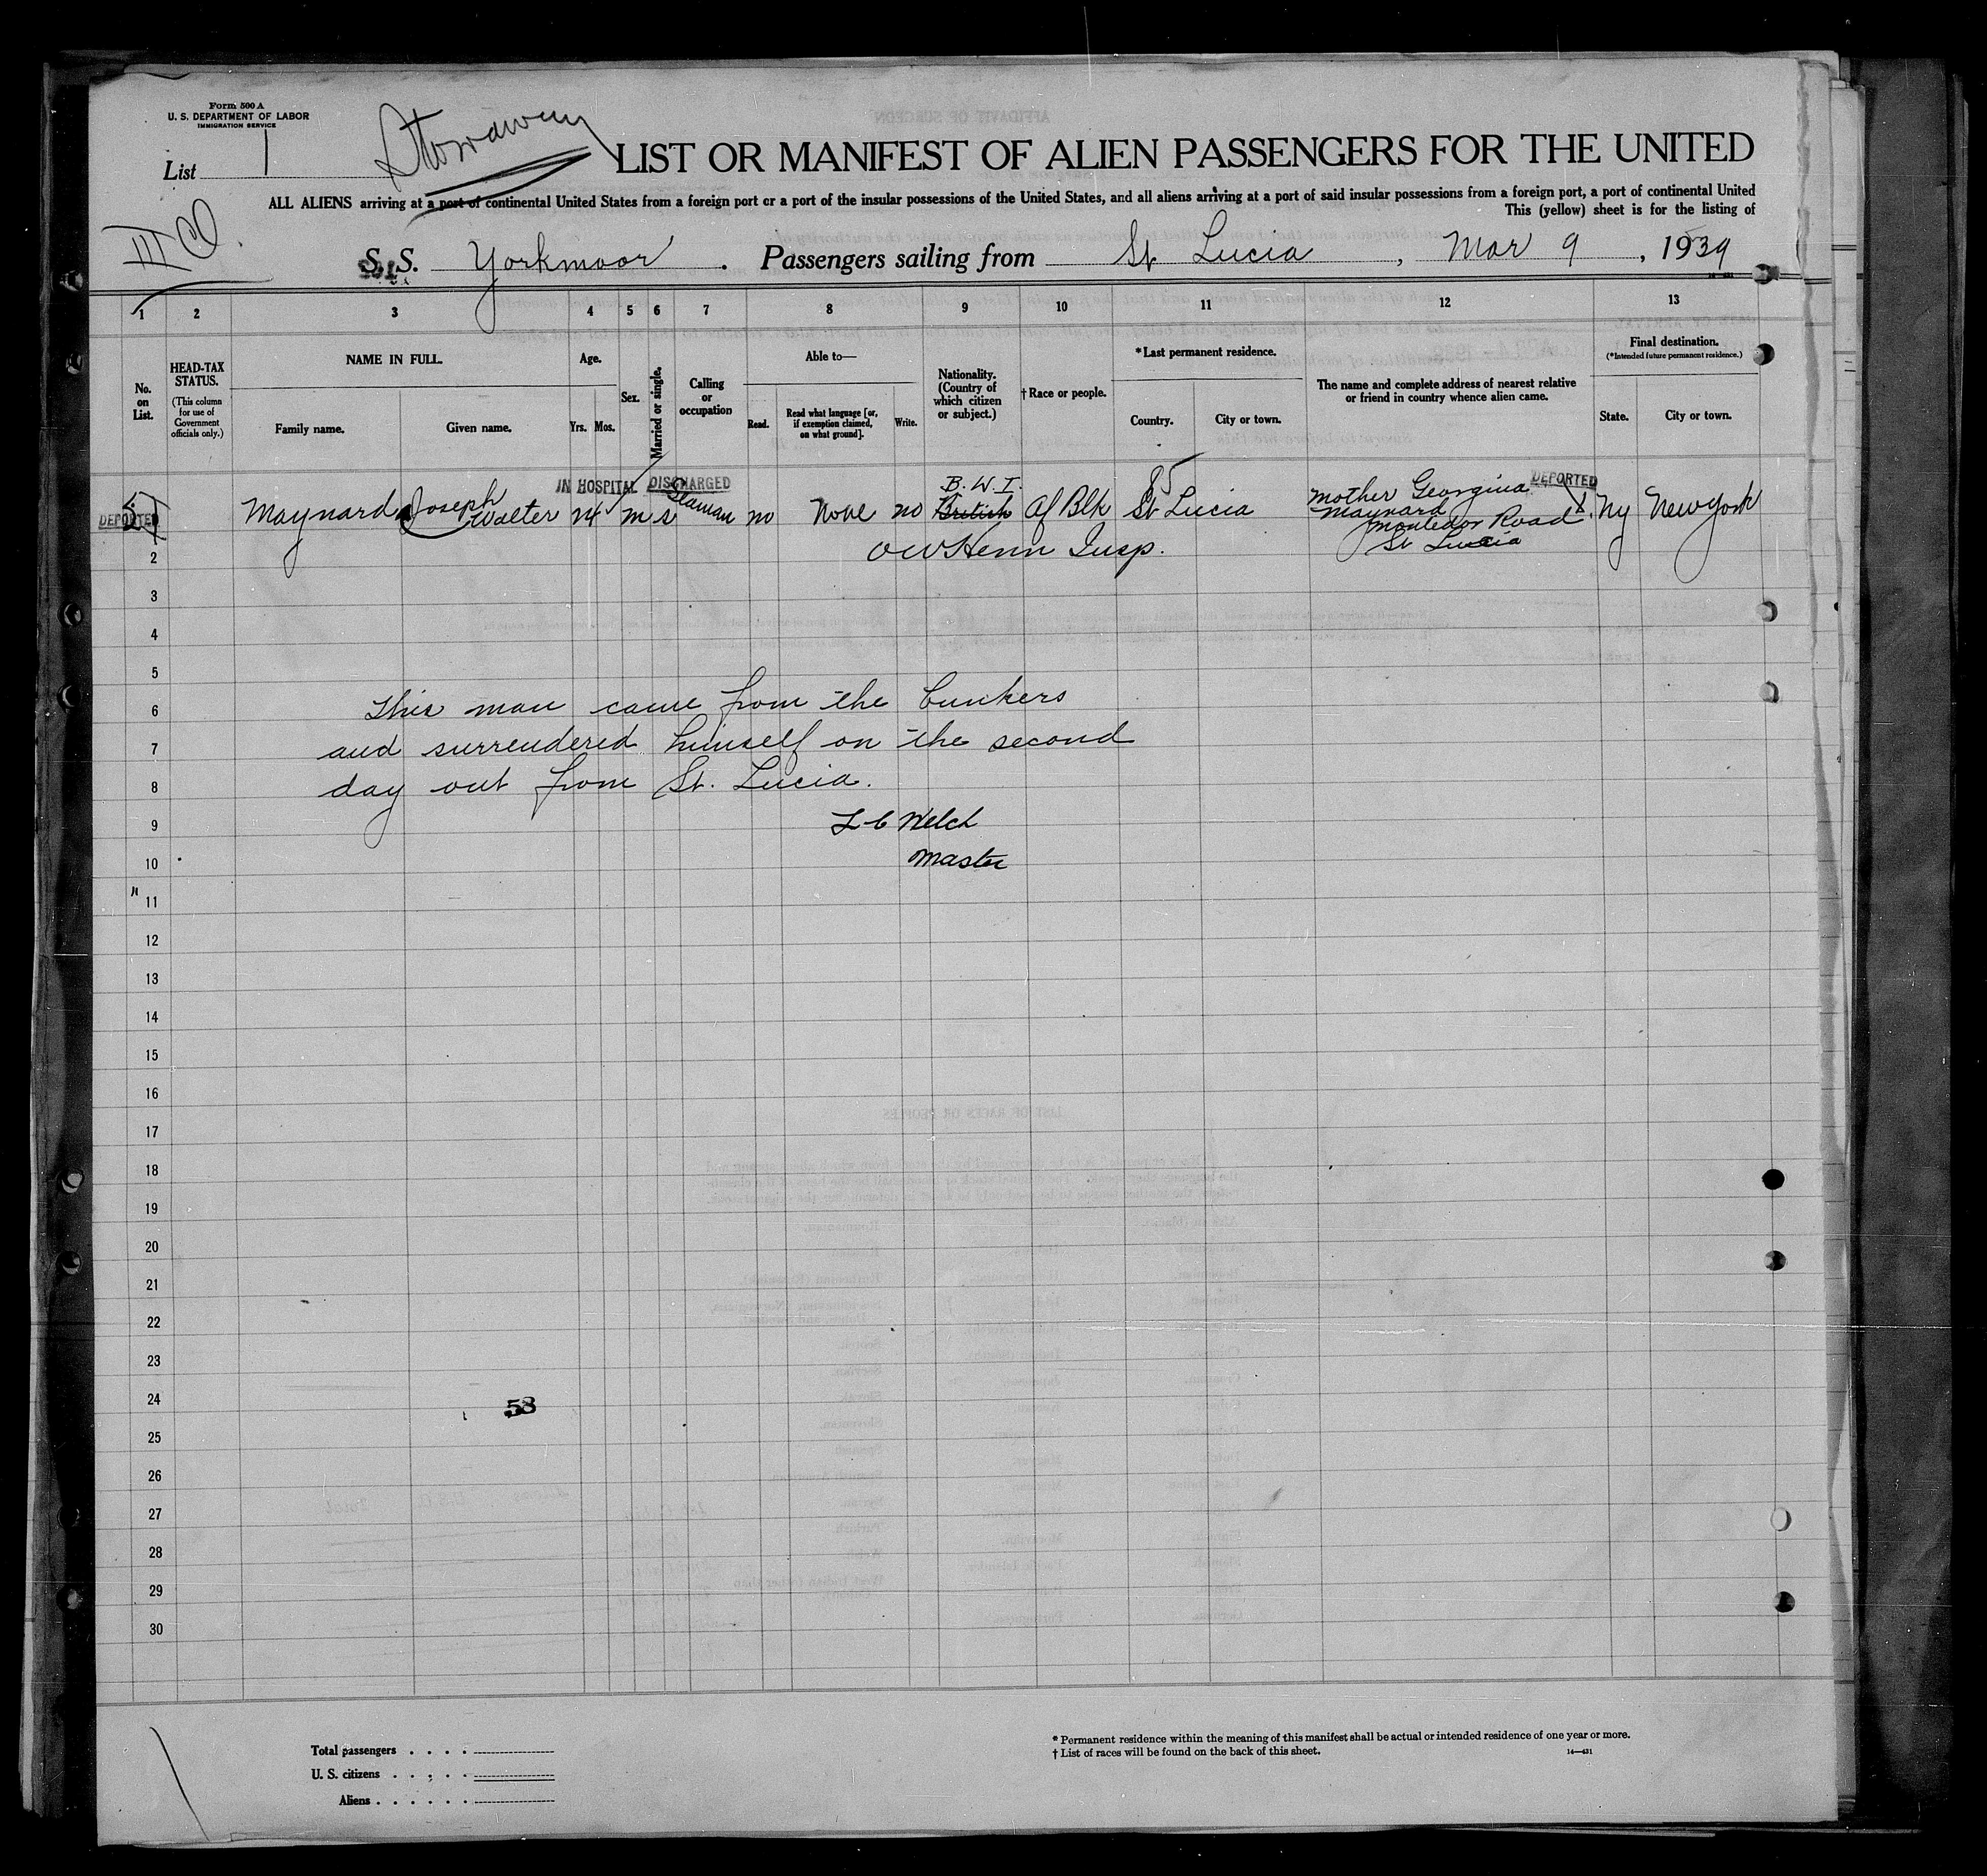 Form 500 A
U. S. DEPARTMENT OF LABOR
IMMIGRATION SERVICE
List 1
Stowaway
LIST OR MANIFEST OF ALIEN PASSENGERS FOR THE UNITED
ALL ALIENS arriving at a port of continental United States from a foreign port or a port of the insular possessions of the United States, and all aliens arriving at a port of said insular possessions from a foreign port, a port of continental United
This (yellow) sheet is for the listing of
S. S. Yorkmoor . Passengers sailing from St Lucia , Mar 9 , 1939
1 2 3 4 5 6 7 8 9 10 11 12 13
No. on List.
HEAD-TAX STATUS.
(This column for use of Government officials only.)
NAME IN FULL.
Family name.
Given name.
Age.
Yrs. Mos.
Sex.
Married or single.
Calling or occupation
Able to—
Read.
Read what language [or, if exemption claimed, on what ground].
Write.
Nationality. (Country of which citizen or subject.)
† Race or people.
*Last permanent residence.
Country.
City or town.
The name and complete address of nearest relative or friend in country whence alien came.
Final destination.
(*Intended future permanent residence.)
State.
City or town.
IN HOSPITAL DISCHARGED
B. W. I.
DEPORTED
DEPORTED Maynard Joseph Walter 24 m s Seaman no None no British Af Blk St Lucia
mother Georgina
Maynard
Road
St Lucia
Ny New york
Insp.
2
3
4
5
6 This man came from the bunkers
7 and surrendered himself on the second
8 day out from St. Lucia.
9 L C Welch
10 Master
11
12
13
14
15
16
17
18
19
20
21
22
23
24 53
25
26
27
28
29
30
Total passengers . . . .
U. S. citizens . . . . .
Aliens . . . . . .
* Permanent residence within the meaning of this manifest shall be actual or intended residence of one year or more.
† List of races will be found on the back of this sheet.
14—431